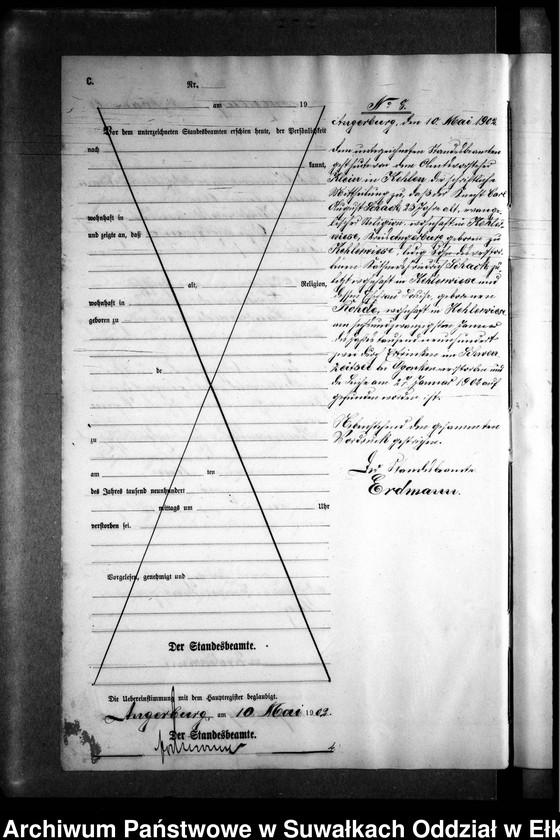 C.
Nr.
am 19
Vor dem unterzeichneten Standesbeamten erschien heute, der Persönlichkeit
nach
kannt,
wohnhaft in
und zeigte an, daß
alt, Religion,
wohnhaft in
geboren zu
de
zu
am ten
des Jahres tausend neunhundert
mittags um Uhr
verstorben sei.
Vorgelesen, genehmigt und
Der Standesbeamte.
Die Uebereinstimmung mit dem Hauptregister beglaubigt.
Angerburg, am 10 Mai 1902.
Der Standesbeamte.
No 8.
Angerburg, den 10. Mai 1902
dem unterzeichneten Standesbeamten
Klein in Kehlen die schriftliche
Mittheilung zu, daß der Knecht Carl
August Schack, 23 Jahre alt, evange-
lischer Religion, wohnhaft in Kehler-
wiese, Kreis Angerburg, geboren zu
Kehlerwiese, Sohn des verstor-
benen Schack, zu-
letzt wohnhaft in Kehlerwiese und
dessen Ehefrau geborenen
wohnhaft in Kehlerwiese
am sechsundzwanzigsten Januar
des Jahres tausend neunhundert
zwei durch Ertrinken im Schwen-
zeitsee bei verstorben und
die Leiche am 27. Januar 1902 auf-
gefunden worden ist.
Nebenstehend den gesammten
Vordruck gestrichen.
Der Standesbeamte
Erdmann.
Archiwum Państwowe w Suwałkach Oddział w Ełk